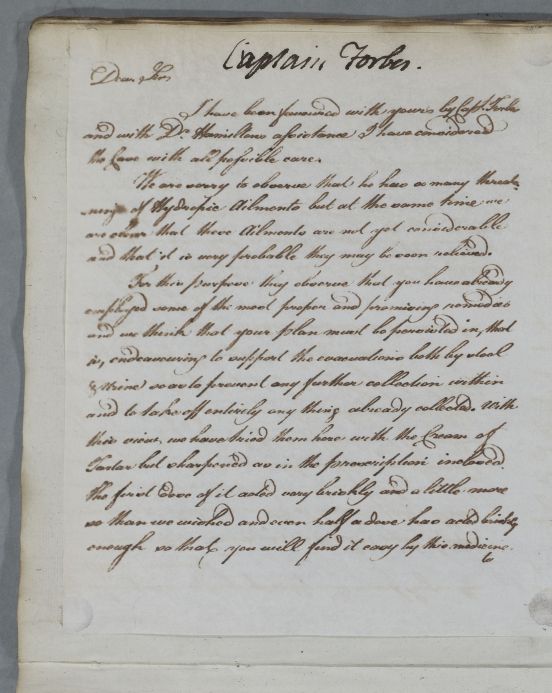 Captain Forbes.
Dear Sir
I have been favoured with yours by Capt. Forbes
and with Dr. Hamiltons assistance I have considered
the Case with all possible care.
We are sorry to observe that he has so many threat-
-nings of Hydropic Ailments but at the same time we
are clear that these Ailments are not yet considerable
and that it is very probable they may be soon relieved.
For this purpose they observe that you have already
employed some of the most proper and promising remedies
and we think that your plan must be persisted in, that
is, endeavouring to support the evacuations both by stool
& urine so as to prevent any further collection within
and to take off entirely any thing already collected. With
this view, we have tried them here with the Cream of
Tartar but sharpened as in the prescription inclosed.
the first dose of it acted very briskly and a little more
so than we wished and even half a dose has acted briskly
enough so that you will find it easy by this medicine
to